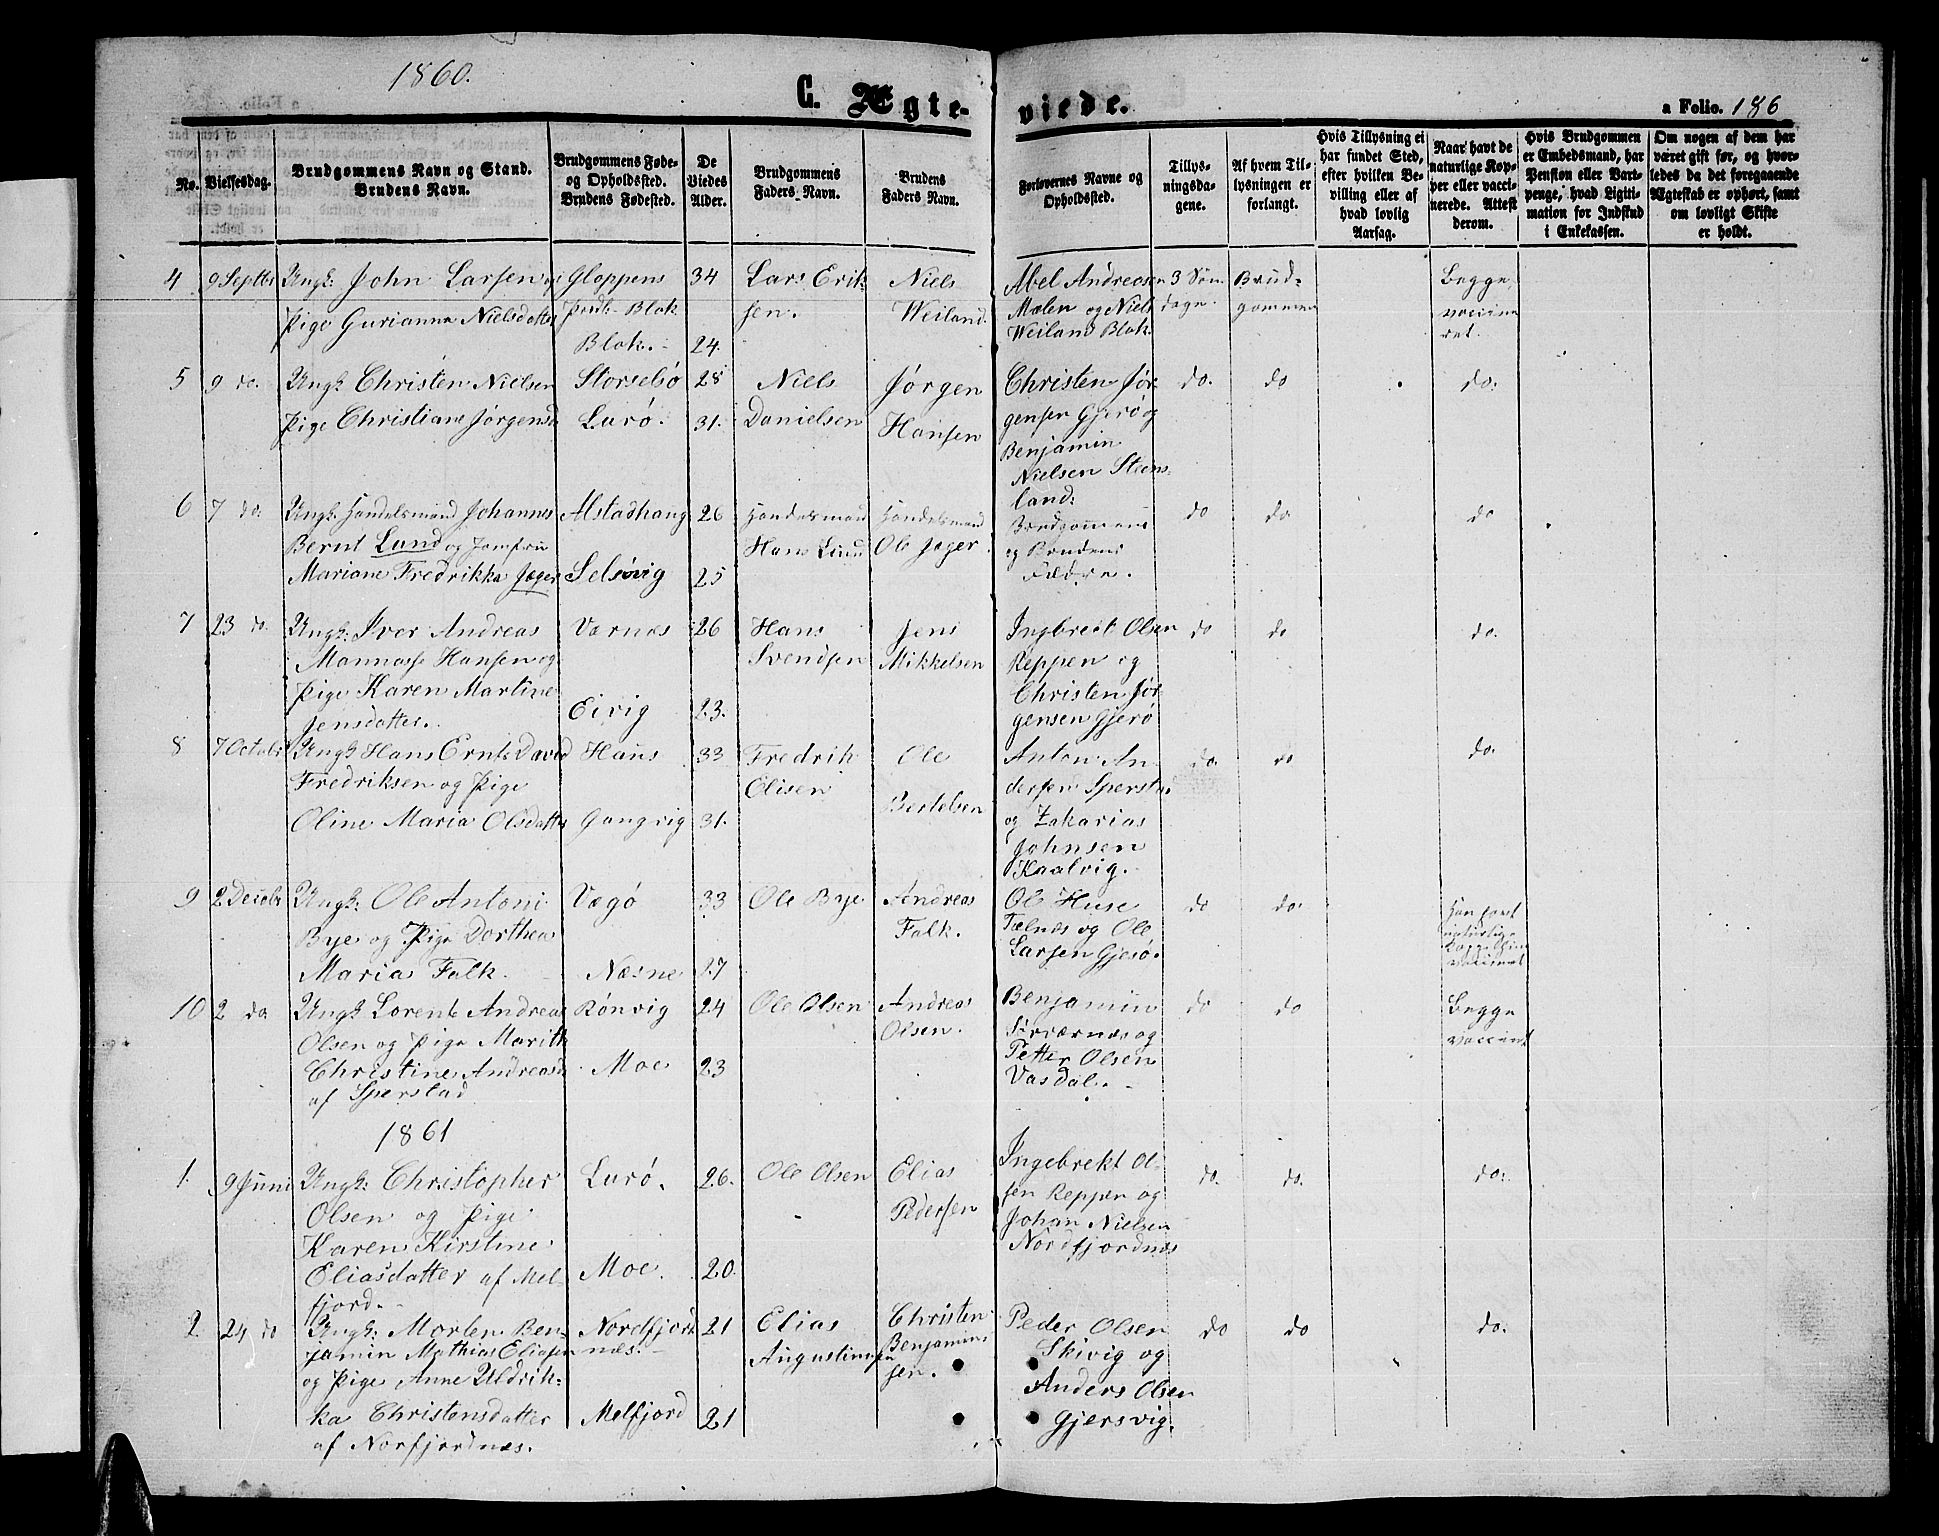 1860.
C. Ægteviede.
a Folio. 186
No.
Vielsesdag.
Brudgommens Navn og Stand.
Brudens Navn.
Brudgommens Føde-
og Opholdsted.
Brudens Fødested.
De
Viedes
Alder.
Brudgommens
Faders Navn.
Brudens
Faders Navn.
Forlovernes Navne og
Opholdsted.
Tillys-
ningsda-
gene.
Af hvem Til-
lysningen er
forlangt.
Hvis Tillysning ei
har fundet Sted,
efter hvilken Be-
villing eller af
hvad lovlig
Aarsag.
Naar havt de
naturlige Kop-
per eller vacci-
nerede. Attest
derom.
Hvis Brudgommen
er Embedsmand, har
Pension eller Vart-
penge, hvad Ligiti-
mation for Indskud
i Enkekassen.
Om nogen af dem har
været gift før, og hvor-
ledes da det foregaaende
Ægteskab er ophørt, samt
om lovligt Skifte
er holdt.
4 9 Septbr Ungk: John Larsen og Gloppens 34 Lars Erik- Niels Abel Andreasen 3 Søn Brud- Begge
Pige Gurianna Nielsdatter Prstk Blok sen. Weiland. Mælen og Niels dage. gommen vaccine
Blok. 24. Weiland Blok. ret.
5 9 do. Ungk Christen Nielsen Storselsø 28 Niels Jørgen Christen Jør- do. do do.
Pige Christiane Jørgensd Lurø. 31. Danielsen Hansen gensen Gjerø og
Benjamin
Nielsen Steens
land.
6 7 do. Ungk: Handelsmand Johannes Alstadhaug 26 Handelsmand Handelsmand Brudgommens do do do
Bernt Lund og Jomfru Hans Lund Ole Jæger. og Brudens
Mariane Fredrikka Jæger Selsøvig 25 Fædre.
7 23 do. Ungk: Iver Andreas Værnæs 26 Hans Jens Ingbreit Olsen do do do.
Mannasse Hansen og Svendsen Mikkelsen Reppen og
Pige Karen Martine Eivig 23. Christen Jør
Jensdatter. gensen Gjerø
8 7 Octobr Ungk Hans Ernt David Hans 33 Fredrik Ole Anton An- do. do do.
Fredriksen og Pige Elisen Bertelsen dersen Sperstad
Oline Maria Olsdatter Gangvig 31. og Zakarias
Johnsen
Kaalvig.
9 2 Decebr Ungk: Ole Antoni Vegø 33 Ole Bye Andreas Ole Huse do do. Han havt
Bye og Pige Dorthea Falk. Tælnæs og Ole naturlige
Marias Falk. Næsne 27 Larsen Gjesø. Kopper hun
vaccineret
10 2 do. Ungk Lorents Andreas Rønvig 24 Ole Olsen Andreas Benjamin do do Begge
Olsen og Pige Marith Olsen. Sørværnæs og vaccinet
Christine Andreasd. Moe 23 Petter Olsen
af Sperstad Vasdal.
1861
1. 9 Juni Ungk: Christopher Lurø. 26. Ole Olsen Elias Ingebrekt Ol- do. do. do.
Olsen og Pige Pedersen sen Reppen og
Karen Kirstine Johan Nielsen
Eliasdatter af Mel- Moe. 20. Nordfjordnæs
fjord.
2 24 do Ungk: Morten Ben- Nordfjord 21 Elias Christen Peder Olsen do do do.
jamin Mathias Eliasen næs. Augustinusen Benjamin- Skivig og
og Pige Anne Uldrik- sen. Anders Olsen
ka Christensdatter Melfjord 21 Gjersvig.
af Norfjordnæs.